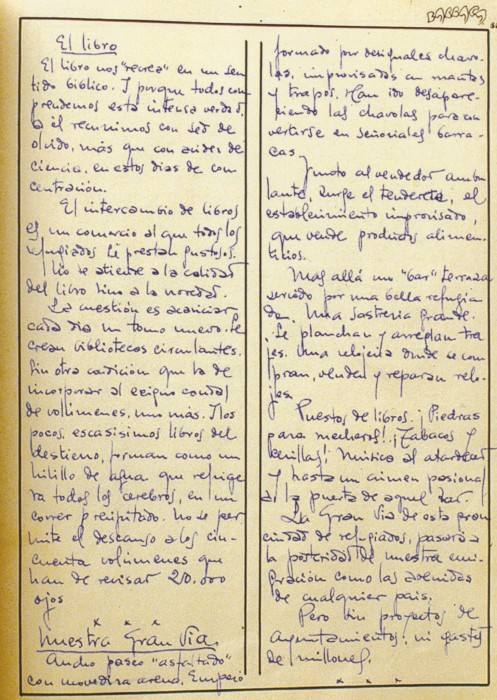 BARRACA
El libro
El libro nos "recrea" en un sen-
tido bíblico. Y porque todos com
prendemos esta intensa verdad,
a él recurrimos con sed de
olvido, más que con avidez de
ciencia, en estos días de con-
centración.
El intercambio de libros
es un comercio al que todos los
refugiados se prestan gustosos.
No se atiende a la calidad
del libro sino a la novedad.
La cuestión es acariciar
cada día un tomo nuevo. Se
crean bibliotecas circulantes.
Sin otra condición que la de
incorporar al exiguo caudal
de volúmenes, uno más. Y los
pocos, escasísimos libros del
destierro, forman como un
hilillo de agua que refrige
ra todos los cerebros, en un
correr precipitado. No se per
mite el descanso a los cin-
cuenta volúmenes que
han de revisar 20.000
ojos
x x x
Nuestra Gran Vía.
Ancho paseo "asfaltado"
con movediza arena. Empezó
formado por desiguales chavo-
las, improvisadas con mantas
y trapos. Han ido desapare-
ciendo las chavolas para con
vertirse en señoriales barra-
cas.
Junto al vendedor ambu
lante, surge el tenderete, el
establecimiento improvisado,
que vende productos alimen-
ticios.
Mas allá un "bar" terraza
servido por una bella refugia
da. Una sastrería grande.
Se planchan y arreglan tra
jes. Una relojería donde se com
pran, venden y reparan relo-
jes.
Puestos de libros. ¡Piedras
para mecheros! ¡Tabacos y
cerillas! Música al atardecer
y hasta un crimen pasional
a la puerta de aquel bar.
La Gran Vía de esta gran
ciudad de refugiados, pasará a
la posteridad de nuestra emi-
gración como las avenidas
de cualquier país.
Pero sin proyectos de
Ayuntamientos, ni gastos
de millones.
x x x